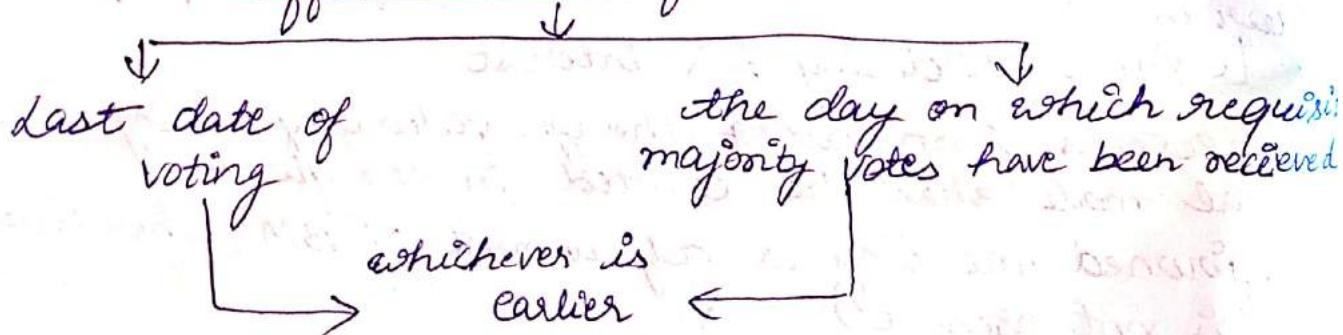 Last date of
voting
the day on which requisit
majority votes have been recieved
whichever is
earlier